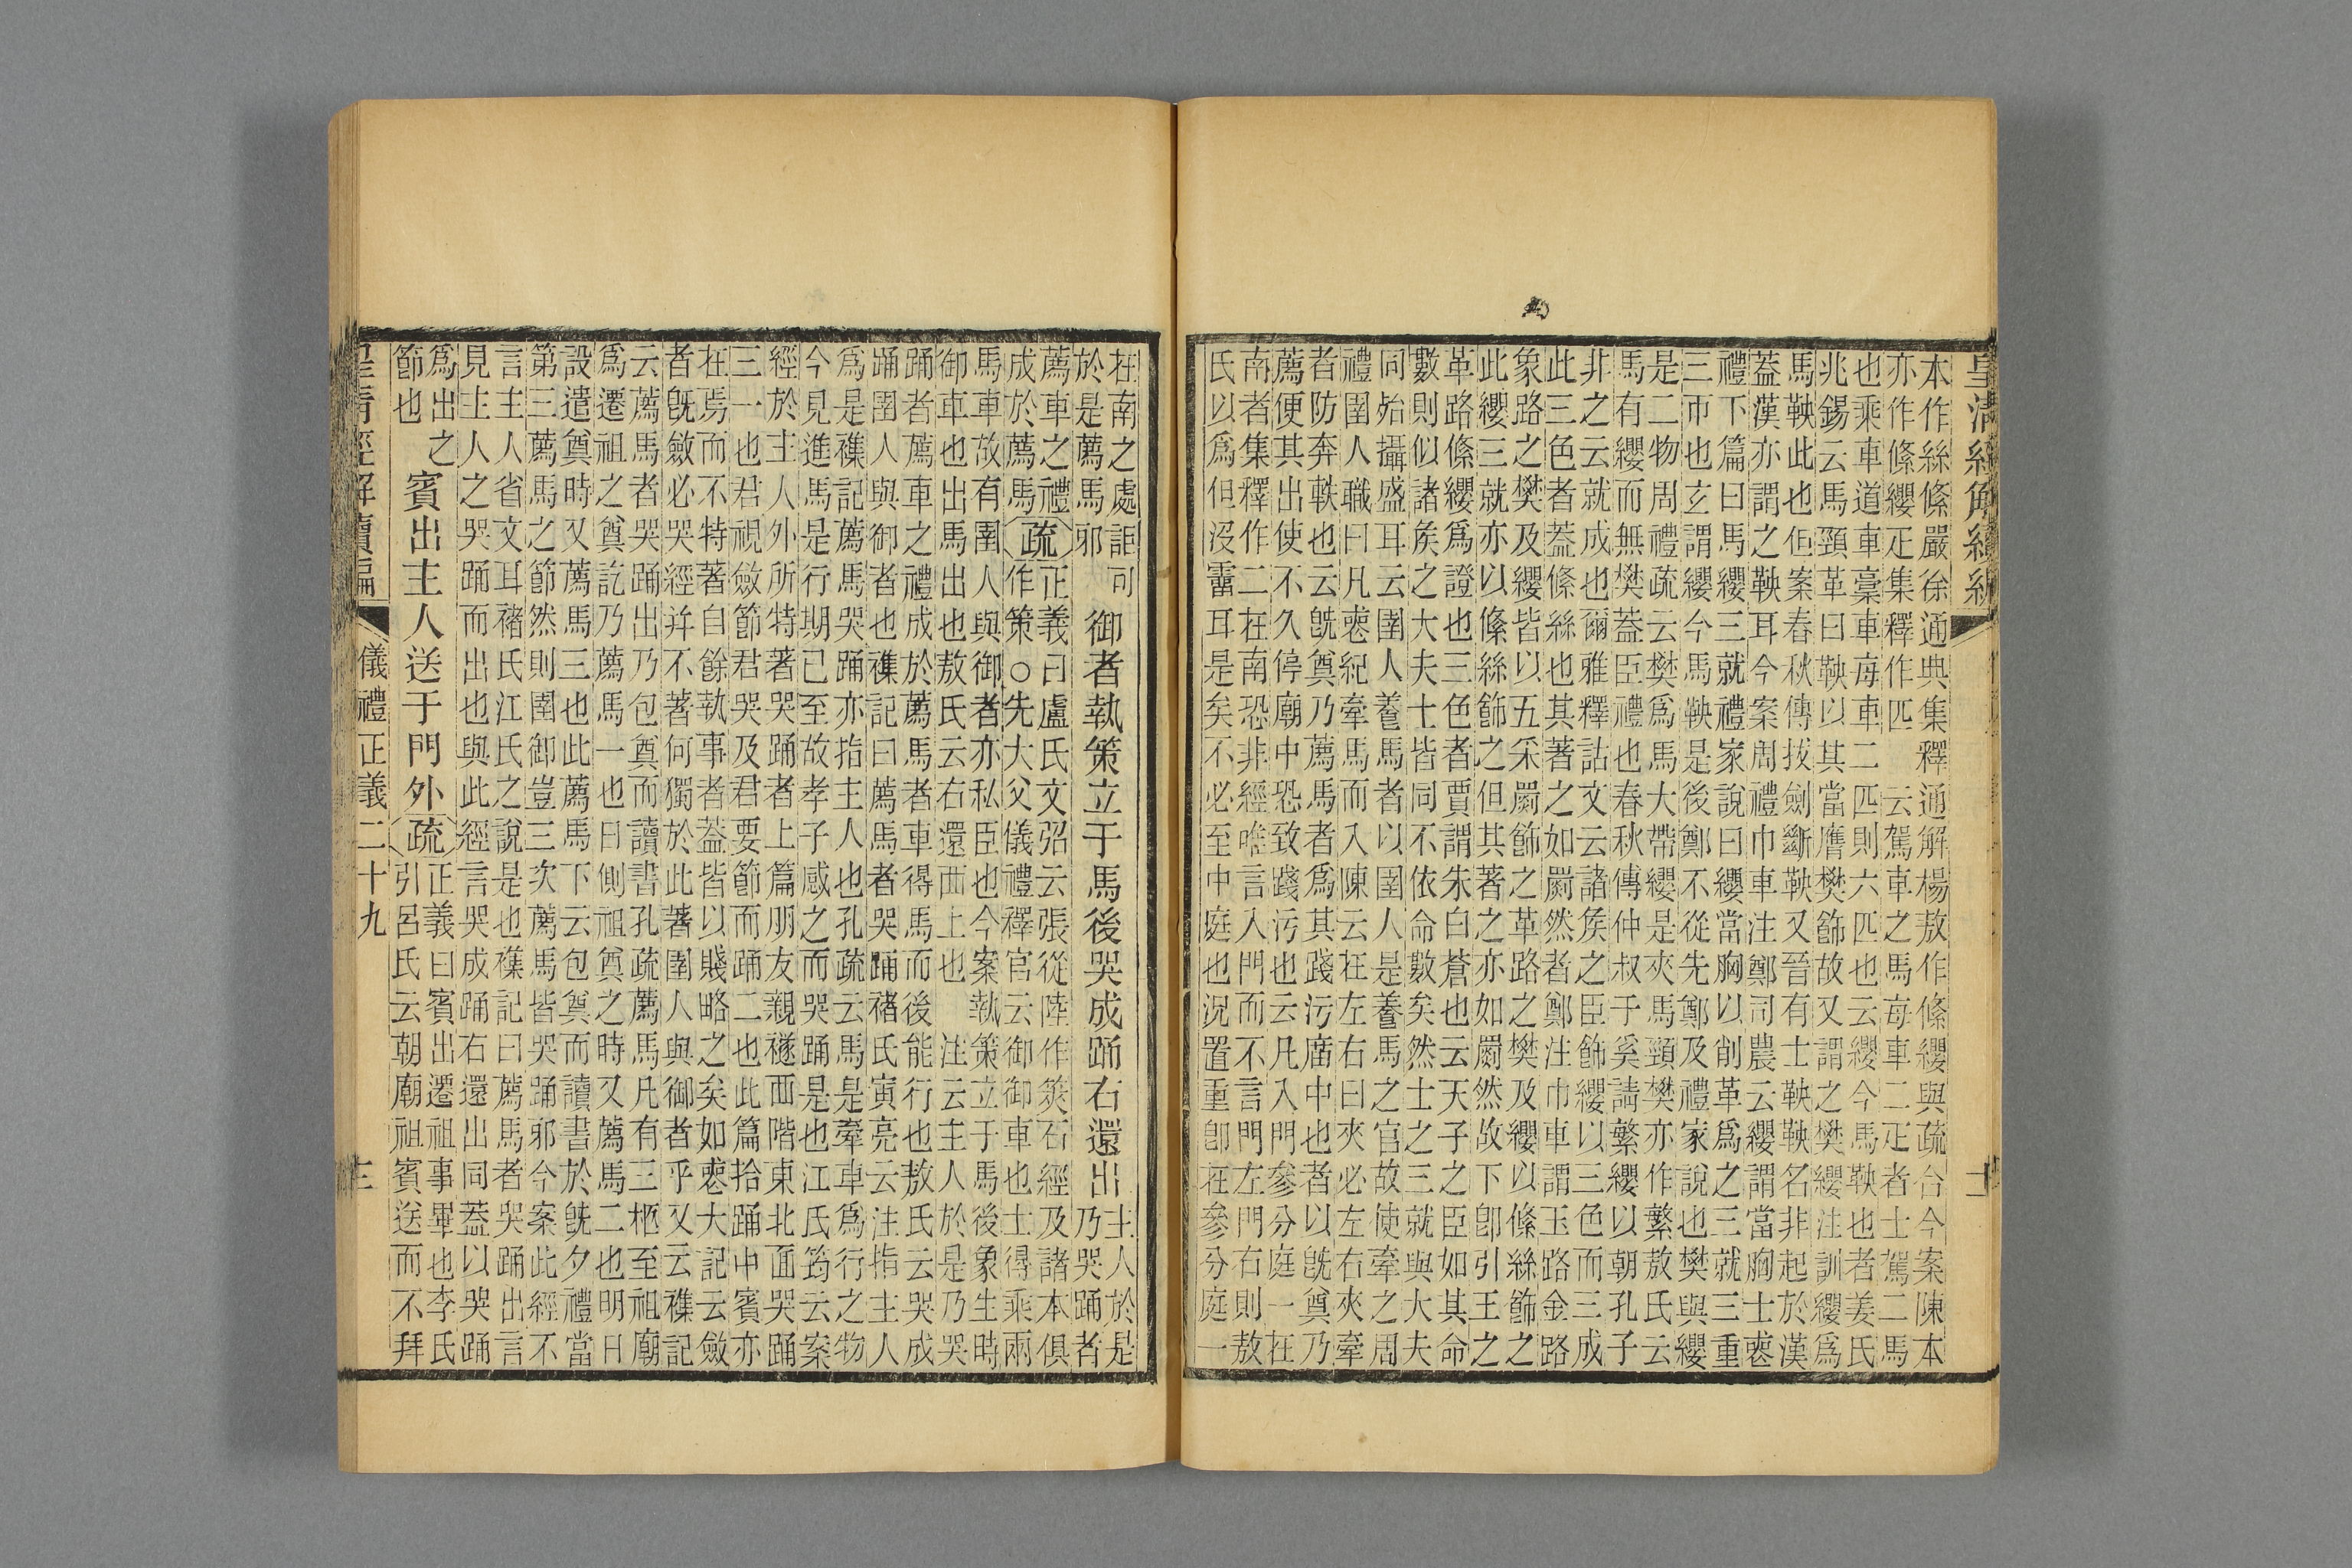 皇清經解續編
本作絲絛嚴徐通典集釋通解楊敖作絛纓與疏合今案陳本
亦作絛纓疋集釋作匹 云駕車之馬每車二疋者士駕二馬
也乘車道車藁車每車二匹則六匹也云纓今馬鞅也者姜氏
兆錫云馬頸革曰鞅以其當膺樊飾故又謂之樊纓注訓纓爲
馬鞅此也但案春秋傳抜劍斷鞅又晉有士鞅鞅名非起於漢
蓋漢亦謂之鞅耳今案周禮巾車注鄭司農云纓謂當胸士喪
禮下篇曰馬纓三就禮家說曰纓當胸以削革爲之三就三重
三帀也玄謂纓今馬鞅是後鄭不從先鄭及禮家說也樊與纓
是二物周禮疏云樊爲馬大帶纓是夾馬頸樊亦作繁敖氏云
馬有纓而無樊蓋臣禮也春秋傳仲叔于奚請繁纓以朝孔子
非之云就成也爾雅釋詁文云諸矦之臣飾纓以三色而三成
此三色者蓋絛絲也其著之如罽然者鄭注巾車謂玉路金路
象路之樊及纓皆以五采罽飾之革路之樊及纓以絛絲飾之
此纓三就亦以絛絲飾之但其著之亦如罽然故下卽引王之
革路絛纓爲證也三色者賈謂朱白蒼也云天子之臣如其命
數則似諸矦之大夫士皆同不依命數矣然士之三就與大夫
同殆攝盛耳云圉人養馬者以圉人是養馬之官故使牽之周
禮圉人職曰凡喪紀牽馬而入陳云在左右曰夾必左右夾牽
者防奔軼也云旣奠乃薦馬者爲其踐污廟中也者以旣奠乃
薦便其出使不久停廟中恐致踐污也云凡入門參分庭一在
南者集釋作二在南恐非經唯言入門而不言門左門右則敖
氏以爲但沒霤耳是矣不必至中庭也況置重卽在參分庭一
在南之處詎可
於是薦馬邪 御者執策立于馬後哭成踊右還出 主人於是
乃哭踊者
薦車之禮 疏 正義曰盧氏文弨云張從陸作筴石經及諸本俱
成於薦馬 作策○先大父儀禮釋官云御御車也士得乘兩
馬車故有圉人與御者亦私臣也今案執策立于馬後象生時
御車也出馬出也敖氏云右還西上也 注云主人於是乃哭
踊者薦車之禮成於薦馬者車得馬而後能行也敖氏云哭成
踊圉人與御者也襍記曰薦馬者哭踊褚氏寅亮云注指主人
爲是襍記薦馬哭踊亦指主人也孔疏云馬是牽車爲行之物
今見進馬是行期已至故孝子感之而哭踊是也江氏筠云案
經於主人外所特著哭踊者上篇朋友親襚西階東北面哭踊
三一也君視斂節君哭及君要節而踊二也此篇拾踊中賓亦
在焉而不特著自餘執事者蓋皆以賤略之矣如喪大記云斂
者旣斂必哭經幷不著何獨於此著圉人與御者乎又云襍記
云薦馬者哭踊出乃包奠而讀書孔疏薦馬凡有三柩至祖廟
爲遷祖之奠訖乃薦馬一也日側祖奠之時又薦馬二也明日
設遣奠時又薦馬三也此薦馬下云包奠而讀書於旣夕禮當
第三薦馬之節然則圉御豈三次薦馬皆哭踊邪今案此經不
言主人省文耳褚氏江氏之說是也襍記曰薦馬者哭踊出言
見主人之哭踊而出也與此經言哭成踊右還出同蓋以哭踊
爲出之
節也 賓出主人送于門外 疏 正義曰賓出遷祖事畢也李氏
引呂氏云朝廟祖賓送而不拜
皇清經解續編 儀禮正義二十九 三